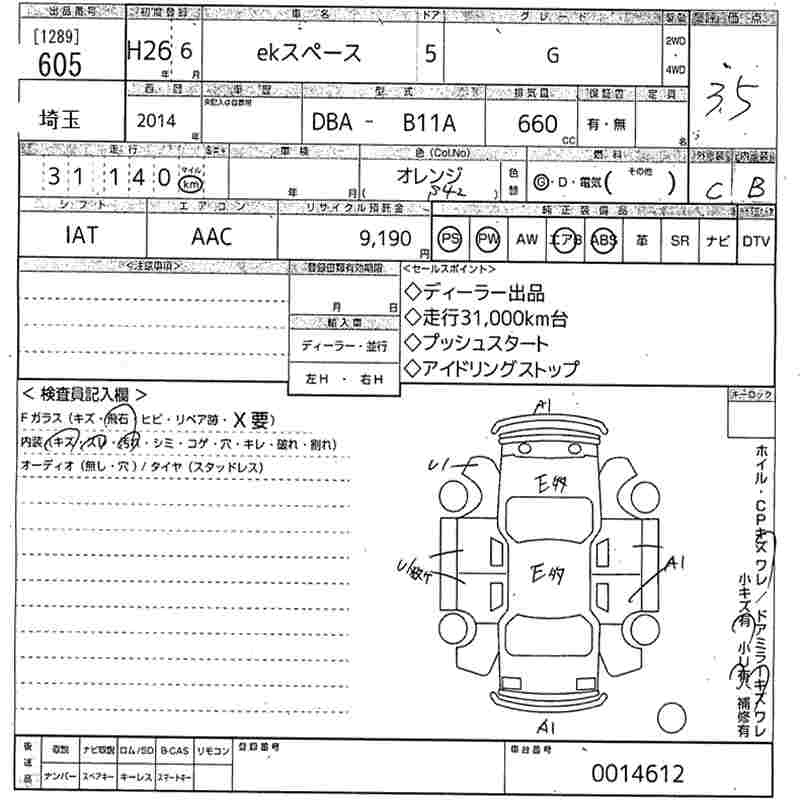 出品番号 初度登録 車名 ドア グレード 駆動 評価点
[1289]
605 H26 年 6 月 ekスペース 5 G 2WD・4WD 3.5
西暦 車歴 型式 排気量 保証書 定員
埼玉 2014年 DBA - B11A 660 CC 有・無 名
走行 車検 色(Col.No) 燃料 外装 内装
31,140 マイル km 年 月 オレンジ 色替 Ⓖ・D・電気(その他) C B
( S42 )
シフト エアコン リサイクル預託金 純正装備品
IAT AAC 9,190円 PS PW AW エアB ABS 革 SR ナビ DTV
<注意事項> 登録書類有効期限 <セールスポイント>
月 日
◇ディーラー出品
◇走行31,000km台
◇プッシュスタート
◇アイドリングストップ
輸入車
ディーラー・並行
左H・右H
<検査員記入欄> キーロック
Fガラス(キズ・飛石・ヒビ・リペア跡・X要)
内装(キズ・スレ・汚れ・シミ・コゲ・穴・キレ・破れ・割れ)
オーディオ(無し・穴)/タイヤ(スタッドレス)
A1
U1
E多
E多
U1
A1
A1
ホイル・CPキズワレ/ドアミラーキズワレ
小キズ有 小U有 補修有
後送品 取説 ナビ取説 ロム/SD B-CAS リモコン 登録番号 車台番号
ナンバー スペアキー キーレス スマートキー 0014612